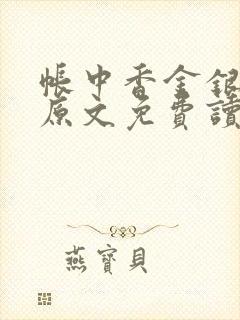 帳中香金銀
原文免費讀
燕寶貝